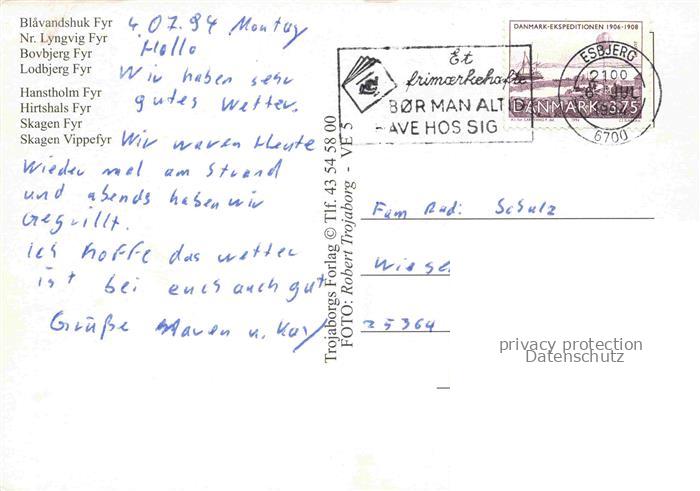 Blåvandshuk Fyr
Nr. Lyngvig Fyr
Bovbjerg Fyr
Lodbjerg Fyr
Hanstholm Fyr
Hirtshals Fyr
Skagen Fyr
Skagen Vippefyr
4.07.94 Montag
Hallo
Wir haben sehr
gutes Wetter.
Wir waren Heute
wieder mal am Strand
und abends haben wir
Gegrillt.
Ich hoffe das wetter
ist bei euch auch gut
Grüße Maren u. Kay
Trojaborgs Forlag © Tlf. 43 54 58 00
FOTO: Robert Trojaborg - VE 5
Et
frimærkehæfte
BØR MAN ALTID
HAVE HOS SIG
DANMARK-EKSPEDITIONEN 1906-1908
DANMARK 3.75
ESBJERG
2100
JUL
6700
Fam Schulz
25364
privacy protection
Datenschutz